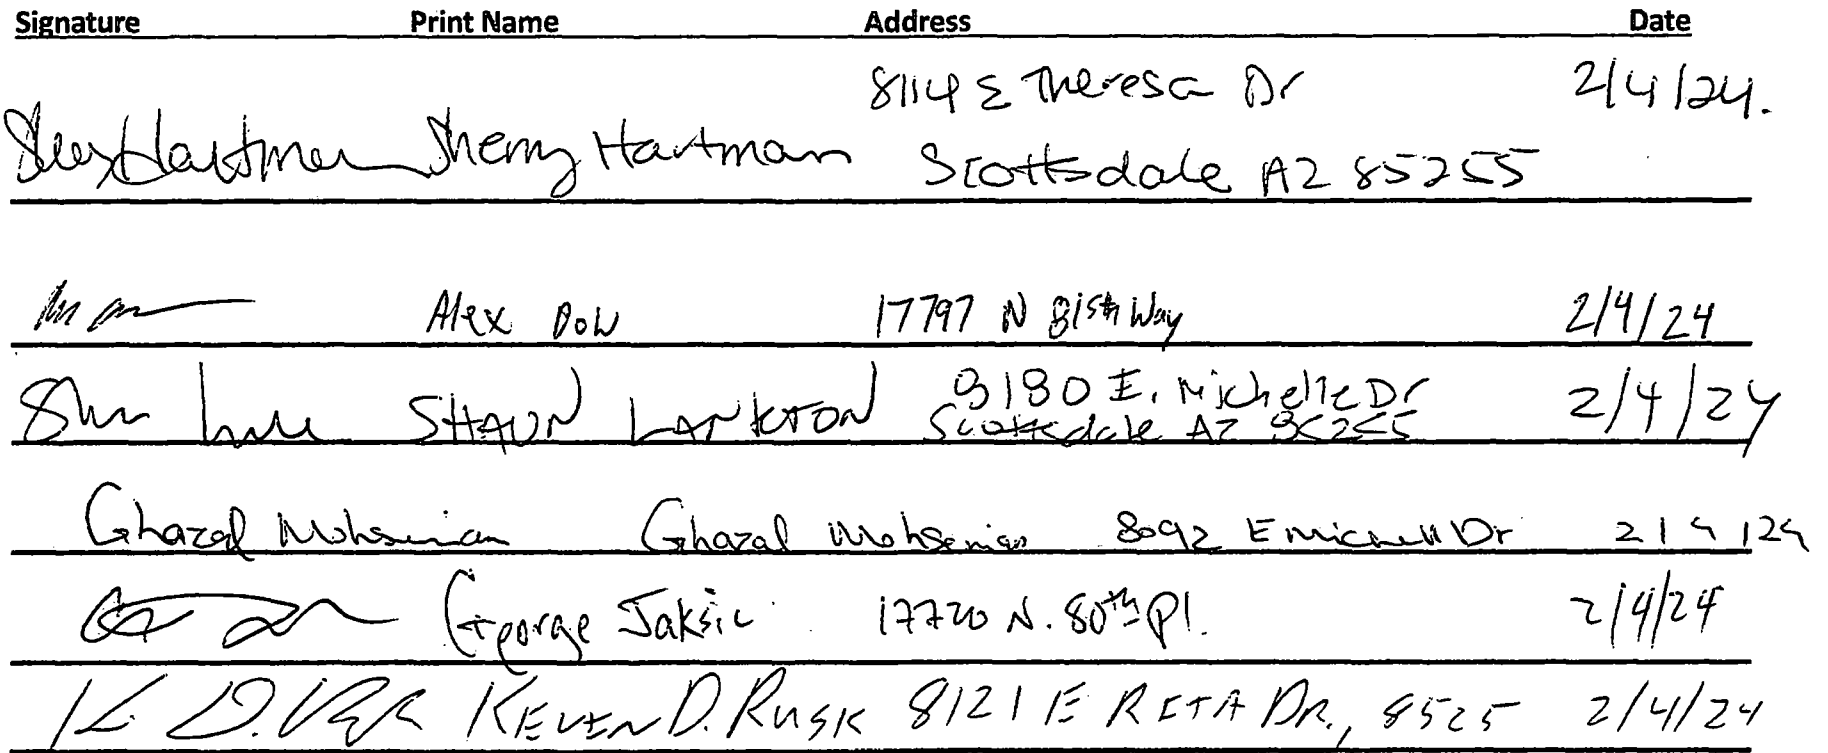 Signature Print Name Address Date
8114 E Theresa Dr 2/4/24.
Sherry Hartman Scottsdale AZ 85255
Alex Dow 17797 N 81st Way 2/4/24
SHAUN LANKTON 8180 E. Michelle Dr 2/4/24
Scottsdale AZ 85255
Ghazal Mohsenian Ghazal Mohsenian 8092 E Michell Dr 2/4/24
George Jaksic 17720 N. 80th Pl. 2/4/24
KEVEN D. RUSK 8121 E RITA DR., 8525 2/4/24